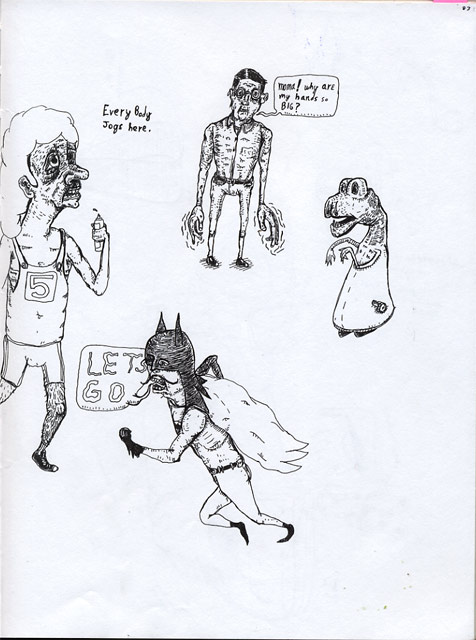 Every Body
Jogs here.
moma! why are
my hands so
BIG?
5
LETS
GO